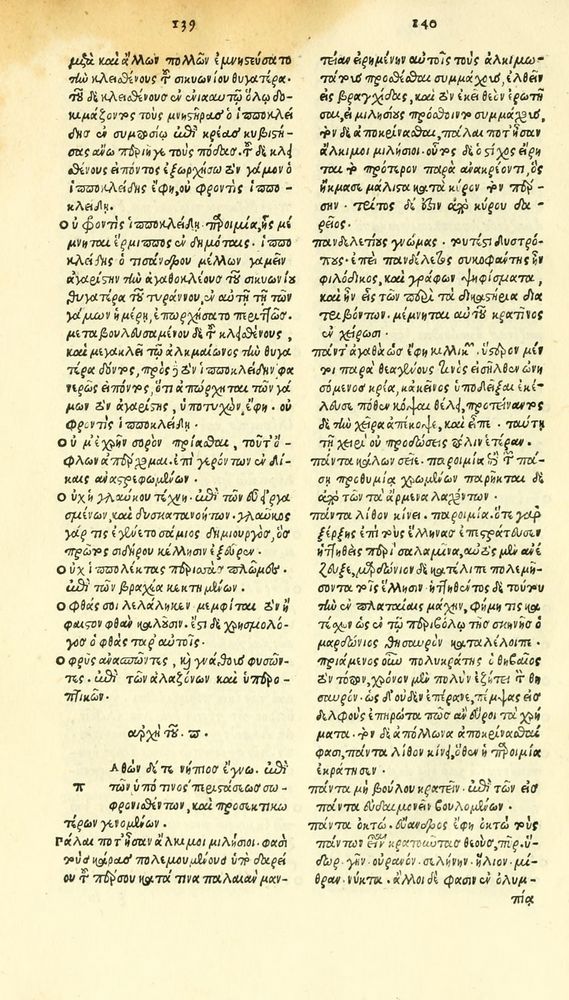 139
μιξὰ καὶ ἄλλων πολλῶν ἐμνηστεύσατο
τὴν κλεισθένους τοῦ σικυωνίου θυγατέρα.
τοῦ δὲ κλεισθένους ἐν ἐνιαυτῷ ὅλῳ δο-
κιμάζοντος τοὺς μνηστῆρας ὁ ἱπποκλεί
δης ἐν συμποσίῳ ἐπὶ κρέας κυβιστή-
σας ἄνω περιῆγε τοὺς πόδας. τοῦ δὲ κλει
σθένους εἰπόντος ἐξωρχήσω τὸν γάμον ὁ
ἱπποκλείδης ἔφη, οὐ φροντὶς ἱππο-
κλείδῃ.
Οὐ φροντὶς ἱπποκλείδῃ. παροιμία, ἧς μέ
μνηται ἕρμιππος ἐν δημόταις. ἱππο
κλείδης ὁ τισάνδρου μέλλων γαμεῖν
ἀγαρίστην τὴν ἀγαθοκλέους τοῦ σικυωνίου
θυγατέρα τοῦ τυράννου, ἐν αὐτῇ τῇ τῶν
γάμων ἡμέρῃ, ἐπωρχήσατο περιττῶς.
μεταβουλευσαμένου δὲ τοῦ κλεισθένους,
καὶ μεγακλεῖ τῷ ἀλκμαίωνος τὴν θυγα
τέρα δόντος, πρὸς δὲ τὸν ἱπποκλείδην φα
νερῶς εἰπόντος, ὅτι ἀπώρχηται τῶν γά
μων τῶν ἀγαρίστης, ὑποτυχὼν ἔφη. οὐ
φροντὶς ἱπποκλείδῃ.
Οὐ μὲ χρὴν σορὸν πρίασθαι, τοῦτ' ὀ-
φλων ἀπέρχομαι. ἐπὶ γερόντων ἐν δί-
καις ἀναστρεφομένων.
Οὐχὴ γλαύκου τέχνη. ἐπὶ τῶν εὖ εἰργα
σμένων, καὶ δυσκατανοήτων. γλαῦκος
γάρ τις ἐγένετο σάμιος δημιουργὸς, ὃς
πρῶτος σιδήρου κόλλησιν ἐξεῦρεν.
Οὐχ ἱππολεκτας περιοσας πλωμοῖς.
ἐπὶ τῶν βραχέα κεκτημένων.
Ὁ φθάς σοι λελάληκεν μεμφίται τὸν ἥ
φαιστον φθαν καλοῦσιν. ἔστι δὲ χρησμολό-
γος ὁ φθὰς παρ' αὐτοῖς.
Ὀφρῦς ἀνασπῶντες, καὶ γνάθους φυσῶν-
τες. ἐπὶ τῶν ἀλαζόνων καὶ ὑπερο-
πτικῶν.
ἀρχὴ τοῦ. π.
π Αθὼν δέ τε νήπιος ἔγνω. ἐπὶ
τῶν ὑπό τινος περιστάσεως σω-
φρονισθέντων, καὶ προσεκτικω
τέρων γενομένων.
Πάλαι ποτ' ἦσαν ἄλκιμοι μιλήσιοι. φασὶ
τοὺς κάρας πολεμουμένους ὑπὸ δαρεί
ου τοῦ πέρσου κατά τινα παλαιὰν μαν-
140
τείαν εἰρημένην αὐτοῖς τοὺς ἀλκιμω-
τάτους προσθέσθαι συμμάχους, ἐλθεῖν
εἰς βραγχίδας, καὶ τὸν ἐκεῖ θεὸν ἐρωτῆ
σαι, εἰ μιλησίους πρόσθοιντο συμμάχους,
τὸν δὲ ἀποκρίνασθαι, πάλαι ποτ' ἦσαν
ἄλκιμοι μιλήσιοι. οὗτος δὲ ὁ στίχος εἴρη
ται τὸ πρότερον παρὰ ἀνακρέοντι, ὃς
ἤκμασε μάλιστα κατὰ κῦρον τὸν πέρ-
σην. τρίτος δέ ἐστιν ἀπὸ κύρου δα-
ρεῖος.
πανδελετίους γνώμας. τουτέστι δυστρό-
πους. ἐπεὶ πανδέλετος συκοφάντης ἦν
φιλόδικος, καὶ γράφων ψηφίσματα,
καὶ ἦν εἷς τῶν περὶ τὰ δικαστήρια δια
τριβόντων. μέμνηται αὐτοῦ κρατῖνος
ἐν χείρωσι.
πάντ' ἀγαθὰ ὡς ἔφη κιλλικῶν. ὕστερον μέν
τοι παρὰ θεαγένους τινὸς εἰσῆλθεν ὠνη
σόμενος κρέα, κἀκεῖνος ὑποδεῖξαι ἐκέ-
λευσε πόθεν κόψαι θέλει, προτείναντος
δὲ τὴν χεῖρα ἀπέκοψε, καὶ εἶπε. ταύτῃ
τῇ χειρὶ οὐ προδώσεις πόλιν ἑτέραν.
πάντα κάλων σεῖε. παροιμία ἐπὶ τοῦ πά-
σῃ προθυμίᾳ χρωμένων παρῆκται δὲ
ἀπὸ τῶν τὰ ἄρμενα λαχόντων.
πάντα λίθον κίνει. παροιμία. ὅτε γὰρ
ξέρξης ἐπὶ τοὺς ἕλληνας ἐπεστράτευσεν
ἡττηθεὶς περὶ σαλαμῖνα, αὐτὸς μὲν ἀνέ
ζευξε, μαρδόνιον δὲ κατέλιπε πολεμή-
σοντα τοῖς ἕλλησιν ἡττηθέντος δὲ τούτου
τὴν ἐν πλαταιαῖς μάχην, φήμη τις κα
τέχων ὡς ἐν τῷ περιβόλῳ τῆς σκηνῆς ὁ
μαρδόνιος θησαυρὸν καταλέλοιπε.
πριάμενος οὖν πολυκράτης ὁ θηβαῖος
τὸν τόπον, χρόνον μὲν πολὺν ἐζήτει τὸν θη
σαυρόν. ὡς δὲ οὐδὲν ἐπέρανε, πέμψας εἰς
δελφοὺς ἐπηρώτα πῶς ἂν εὕροι τὰ χρή
ματα. τὸν δὲ ἀπόλλωνα ἀποκρίνασθαί
φασι, πάντα λίθον κίνει, ὅθεν ἡ παροιμία
ἐκράτησεν.
πάντα μὴ βούλου κρατεῖν. ἐπὶ τῶν εἰς
πάντα εὐδαιμονεῖν βουλομένων.
πάντα ὀκτώ. εὔανδρος ἔφη ὀκτὼ τοὺς
πάντων εἶναι κρατοῦντας θεοὺς, πῦρ. ὕ-
δωρ. γῆν. οὐρανόν. σελήνην. ἥλιον. μί-
θραν. νύκτα. ἄλλοι δέ φασιν ἐν ὀλυμ-
πίᾳ